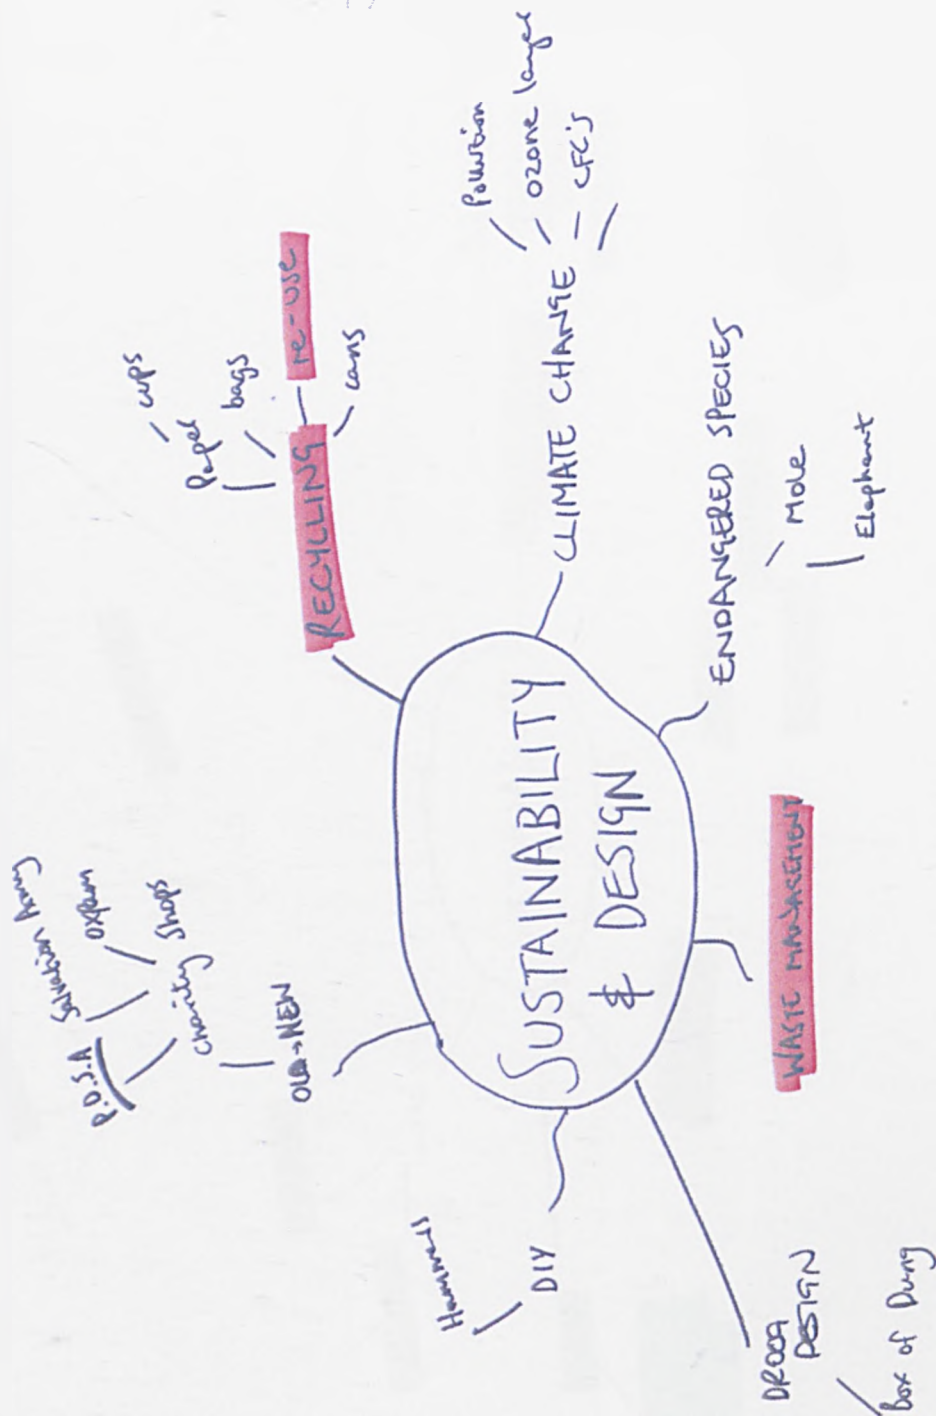 SUSTAINABILITY
& DESIGN
RECYCLLING
re-use
Paper
cups
bags
cans
CLIMATE CHANGE
Pollution
Ozone layer
CFC's
ENDANGERED SPECIES
Mole
Elephant
WASTE MANAGEMENT
DROOG
DESIGN
Box of Dung
DIY
Hammers
OLD→NEW
Charity Shops
P.D.S.A
Salvation Army
Oxfam